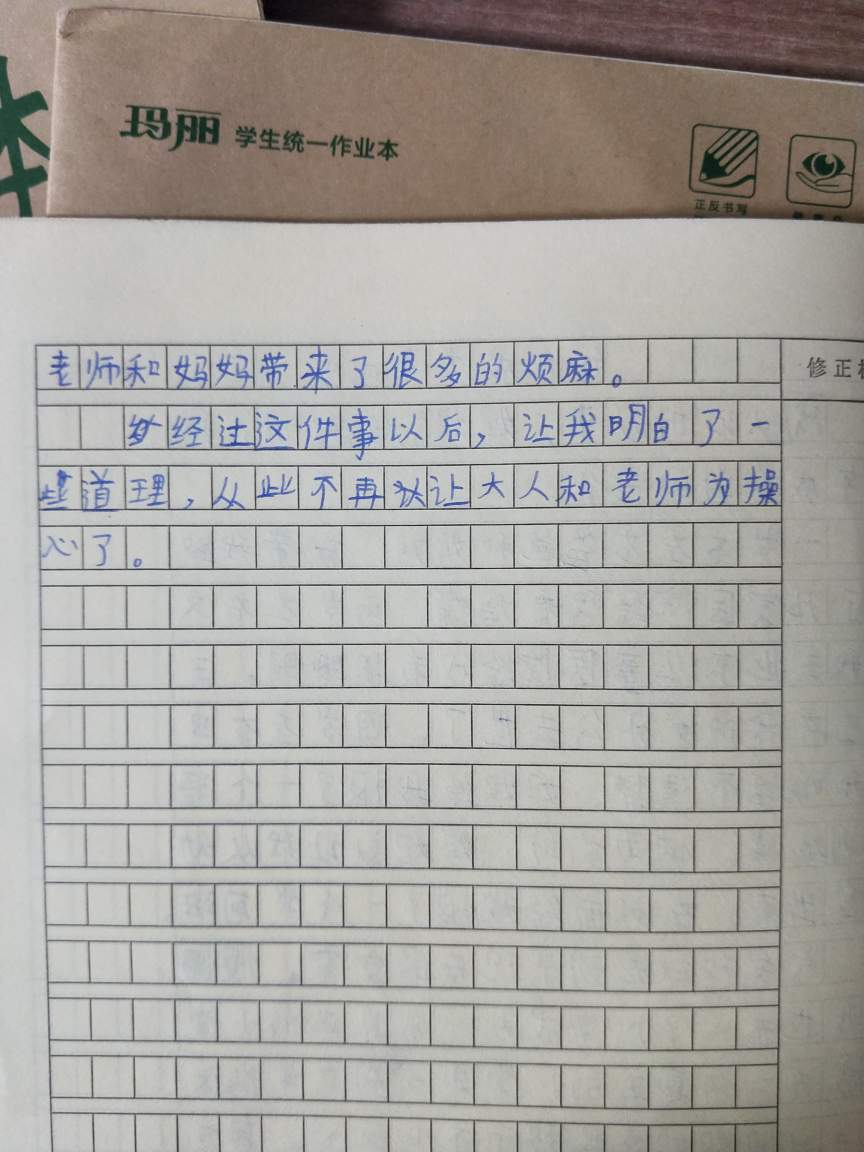 玛丽 学生统一作业本
正反书写
老师和妈妈带来了很多的烦麻。
经过这件事以后，让我明白了一
些道理，从此不再让大人和老师为操
心了。
修正